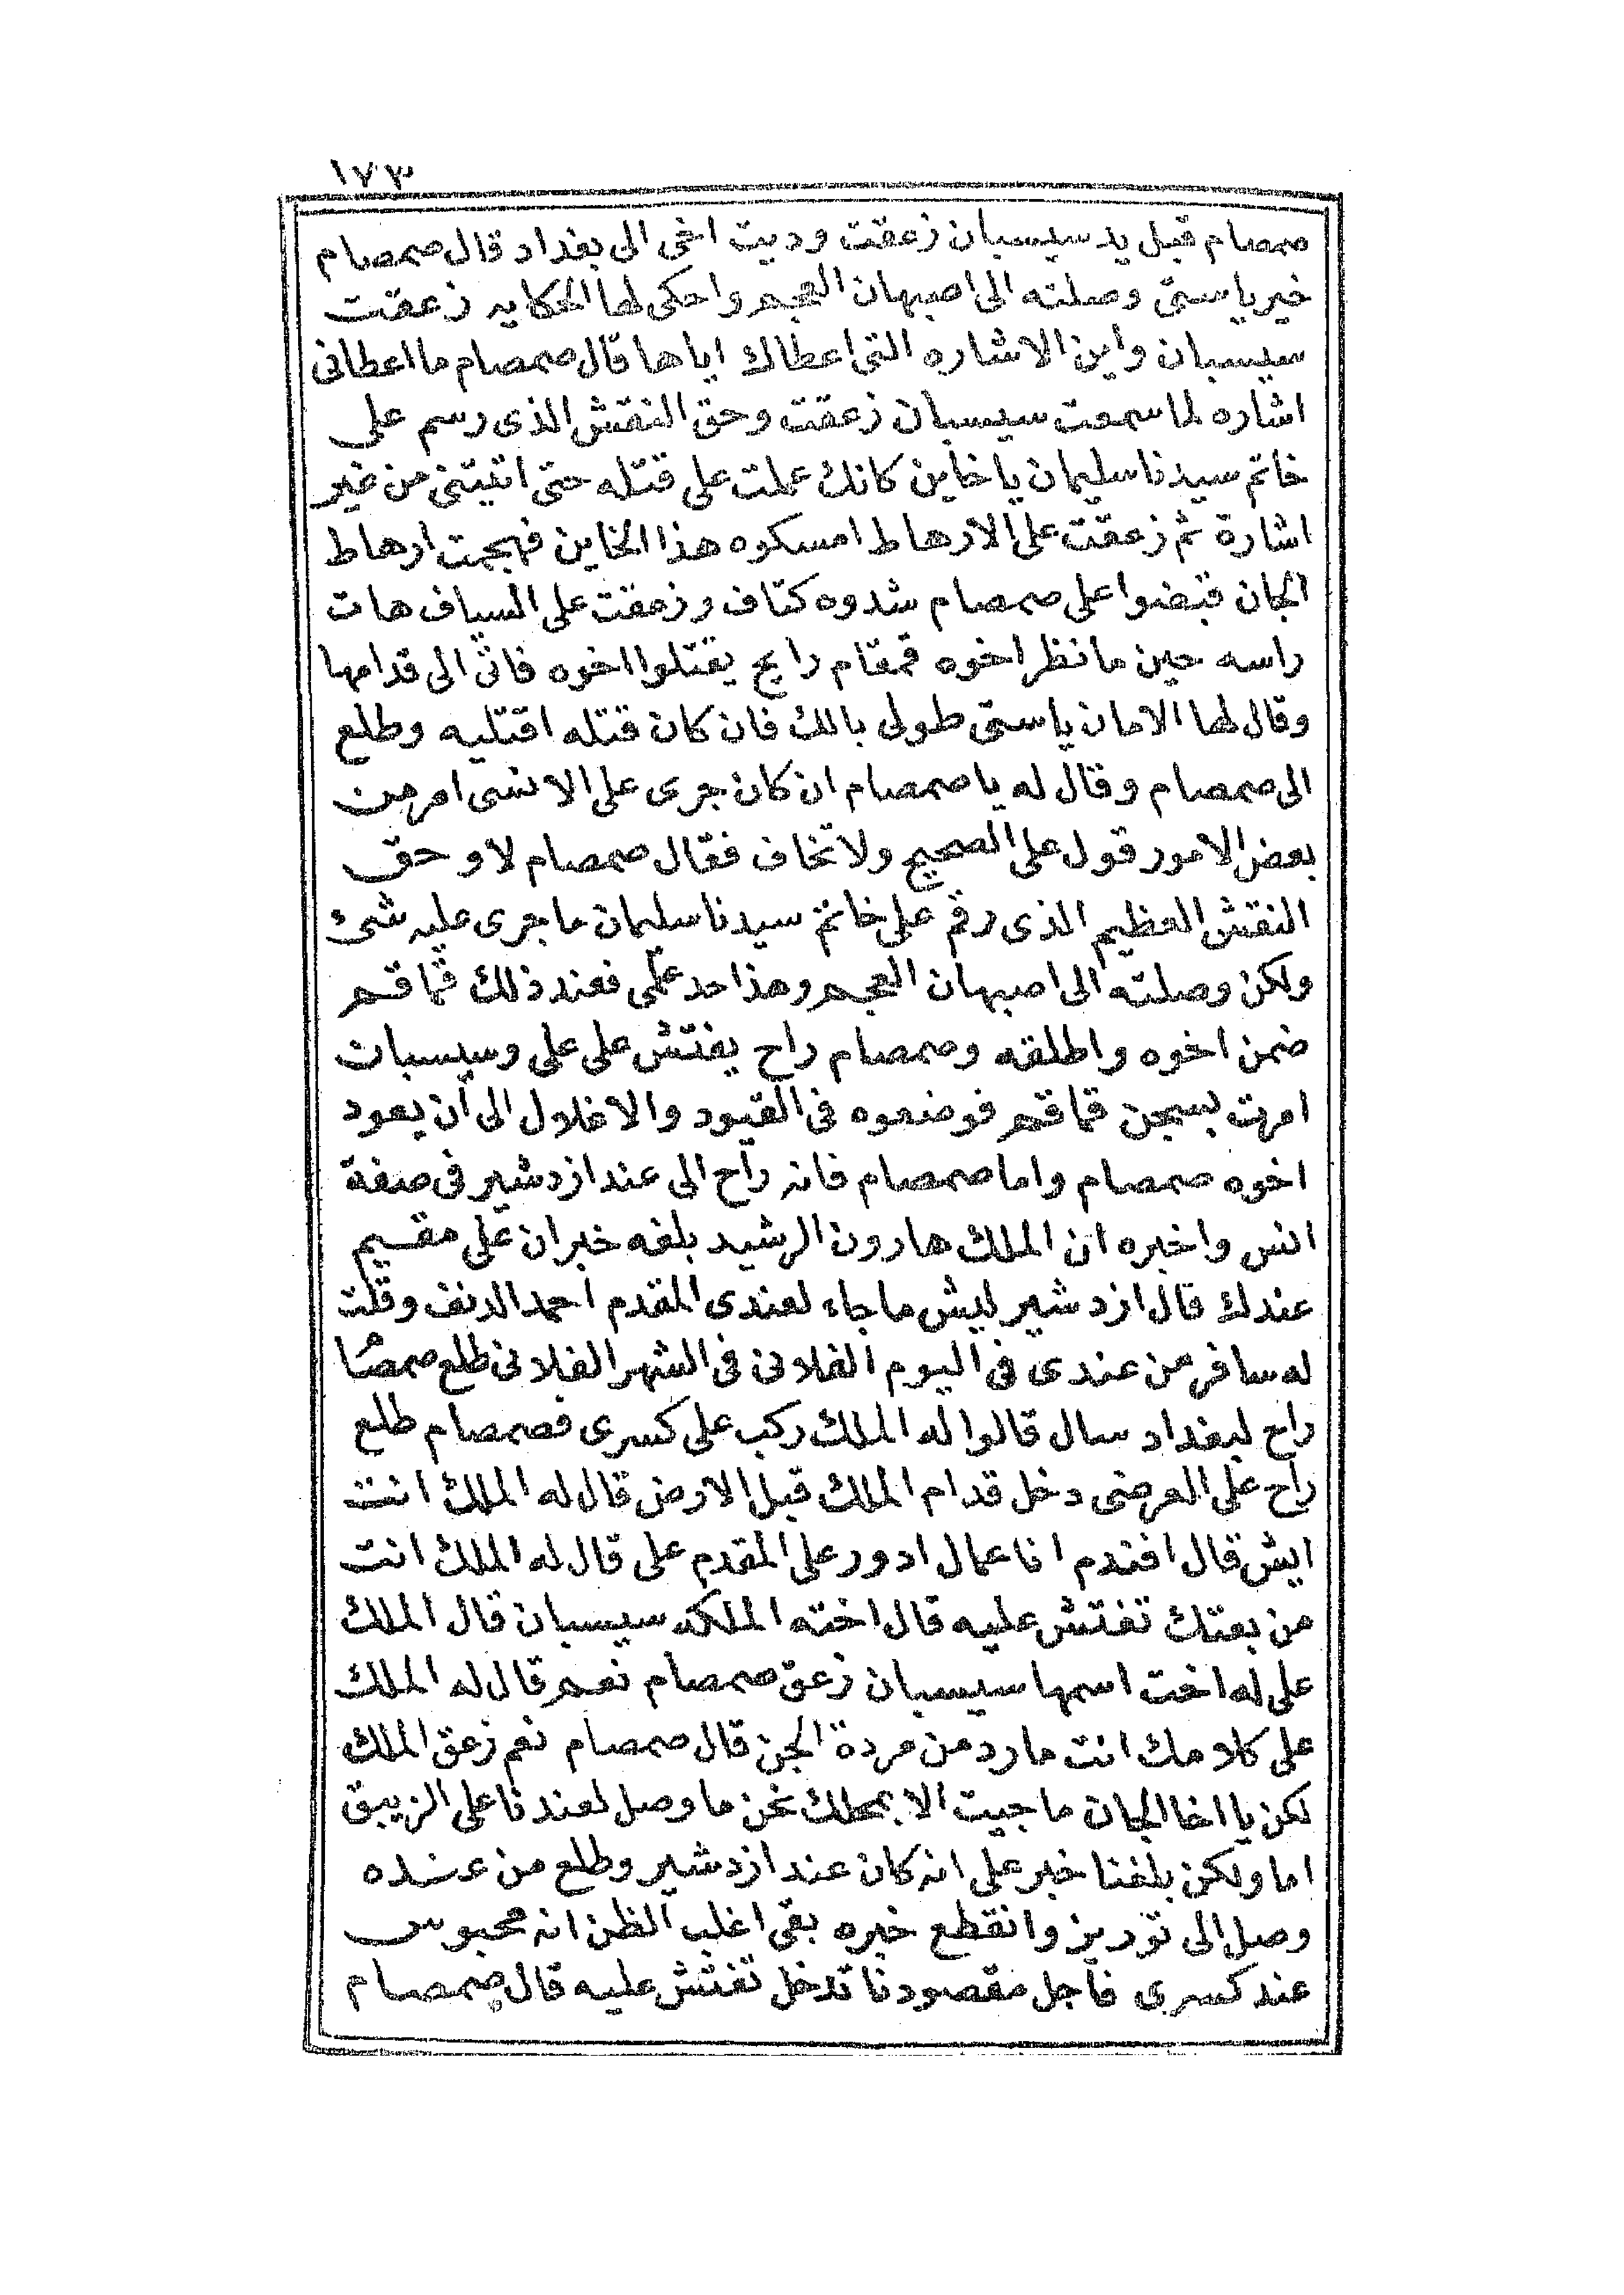 ١٧٣
صمصام قبل يد سيسبان زعقت وديت اخى الى بغداد قال صمصام
خير يا ستى وصلته الى اصبهان العجم واحكى لها الحكايه زعقت
سيسبان واين الاشاره التى اعطاك اياها قال صمصام ما اعطانى
اشاره لما سمعت سيسبان زعقت وحق النقش الذى رسم على
خاتم سيدنا سليمان يا خاين كانك عملت على قتله حتى اتيتنى من غير
اشارة ثم زعقت على الارهاط امسكوه هذا الخاين فهجمت ارهاط
الجان قبضوا على صمصام شدوه كتاف وزعقت على السياف هات
راسه حين ما نظر اخوه قمقام رايح يقتلوا اخوه فاتى الى قدامها
وقال لها الامان يا ستى طولى بالك فان كان قتله اقتليه وطلع
الى صمصام وقال له يا صمصام ان كان جرى على الانسى امر من
بعض الامور قول على الصحيح ولا تخاف فقال صمصام لا وحق
النقش العظيم الذى رقم على خاتم سيدنا سليمان ما جرى عليه شئ
ولكن وصلته الى اصبهان العجم وهذا حد علمى فعند ذلك قماقم
ضمن اخوه واطلقه وصمصام راح يفتش على على وسيسبان
امرت بسجن قماقم فوضعوه فى القيود والاغلال الى ان يعود
اخوه صمصام واما صمصام فانه راح الى عند ازدشير فى صفة
انس واخبره ان الملك هارون الرشيد بلغه خبر ان على مقيم
عندك قال ازدشير ليش ما جاء لعندى المقدم احمد الدنف وقلت
له سافر من عندى فى اليوم الفلانى فى الشهر الفلانى طلع صمصام
راح لبغداد سال قالوا له الملك ركب على كسرى فصمصام طلع
راح على العرضى دخل قدام الملك قبل الارض قال له الملك انت
ايش قال افندم انا عمال ادور على المقدم على قال له الملك انت
من بعتك تفتش عليه قال اخته الملكه سيسبان قال الملك
على له اخت اسمها سيسبان زعق صمصام نعم قال له الملك
على كلامك انت مارد من مردة الجن قال صمصام نعم زعق الملك
لكن يا اخا الجان ما جيت الا بمحلك نحن ما وصل لعندنا على الزيبق
اما ولكن بلغنا خبر على انه كان عند ازدشير وطلع من عنده
وصل الى توريز وانقطع خبره بقى اغلب الظن انه محبوس
عند كسرى فاجل مقصودنا تدخل تفتش عليه قال صمصام